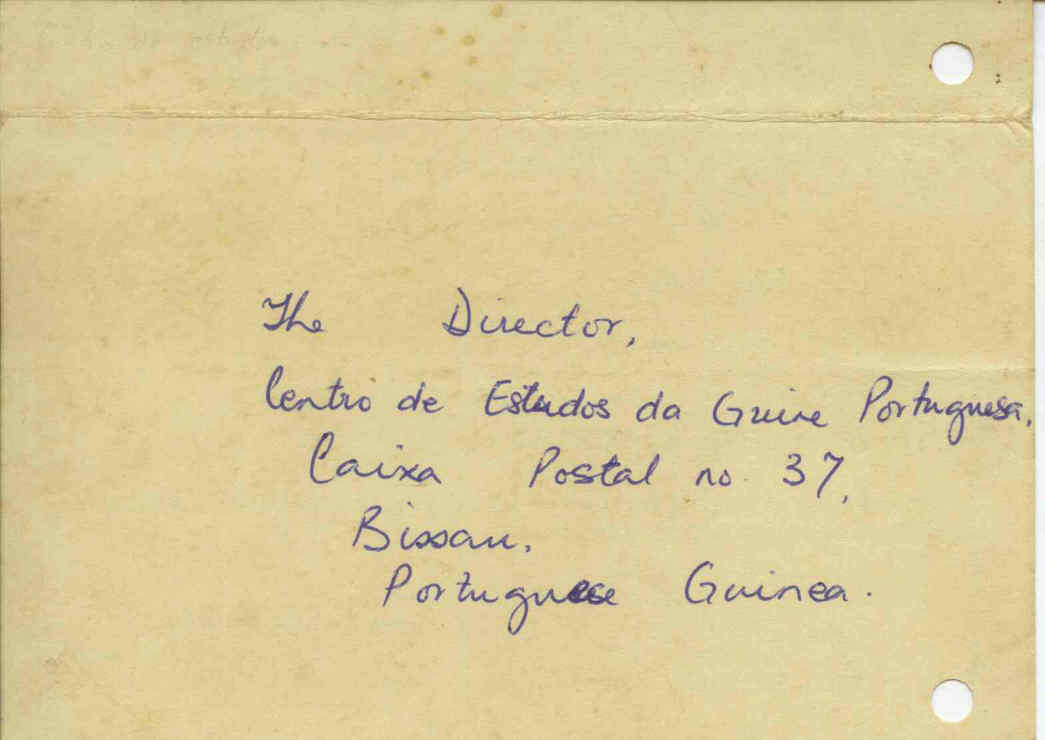 The Director,
Centro de Estudos da Guine Portuguesa.
Caixa Postal no. 37,
Bissau,
Portuguese Guinea.